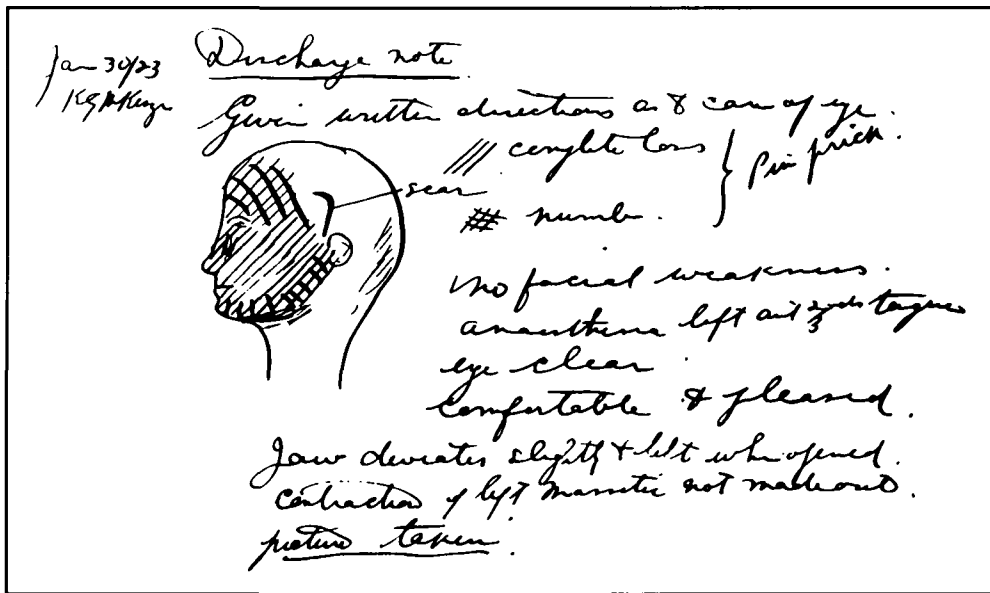 Jan 30/23
KGMcKenzie
Discharge note
Given written directions as to care of eye.
/// complete loss
Pin prick.
scar
numb.
no facial weakness.
anaesthesia left ant 2/3rds tongue
eye clear
comfortable & pleased.
Jaw deviates slightly to left when opened.
contraction of left masseter not made out.
picture taken.